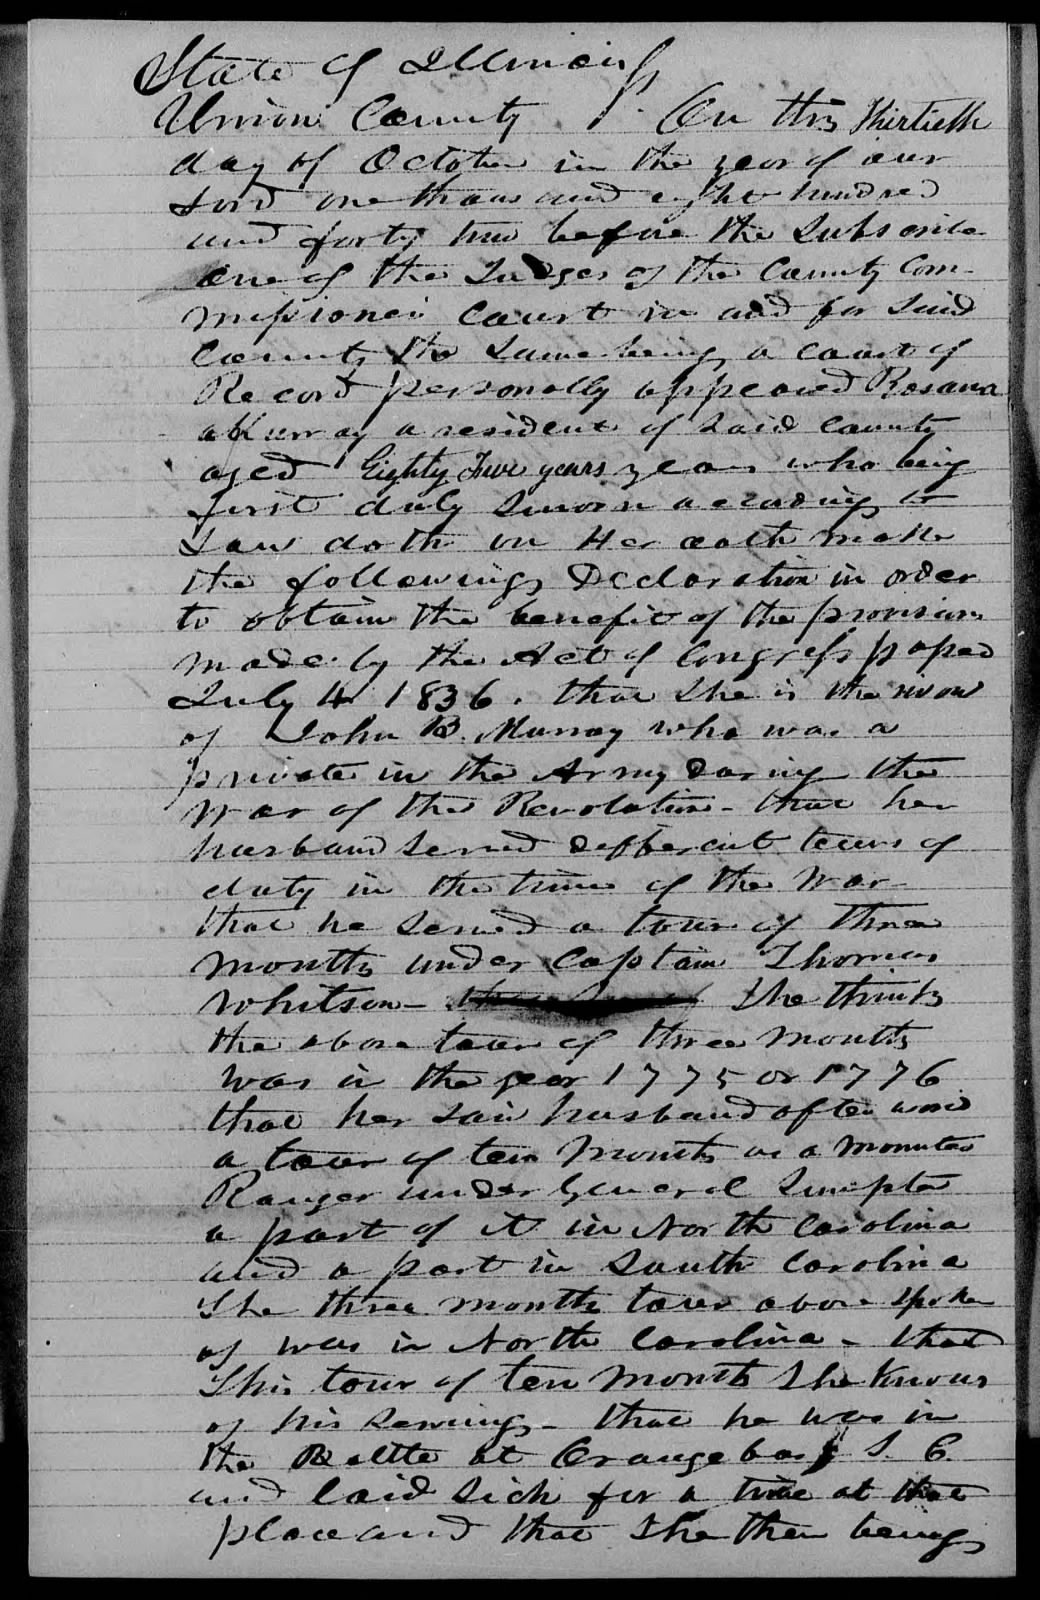 State of Illinois
Union County On this thirtieth
day of October in the year of our
Lord one thousand eight hundred
and forty two before the Subscribe
one of the Judges of the County Com-
missioners Court in and for Said
County the Same being a court of
Record personally appeared Rosana
Murray a resident of Said County
aged Eighty Five years years who being
first duly Sworn according to
Law doth on Her oath make
the following Declaration in order
to obtain the benefit of the provisions
made by the Act of Congress passed
July 4 1836. that She is the widow
of John B. Murray who was a
private in the Army During the
War of the Revolution - that her
husband Served different tours of
duty in the time of the War -
that he Served a tour of three
Months under Captain Thomas
Whitson - She thinks
the above tour of three Months
was in the year 1775 or 1776
that her Said husband afterward
a tour of ten Months as a Monutes
Ranger under General Sumpter
a part of it in North Carolina
and a part in South Carolina
The three months tour above Spoken
of was in North Carolina - that
This tour of ten Months She Knows
of his Serving - that he was in
the Battle at Orangeburg S. C.
and laid Sick for a time at that
place and that She then being